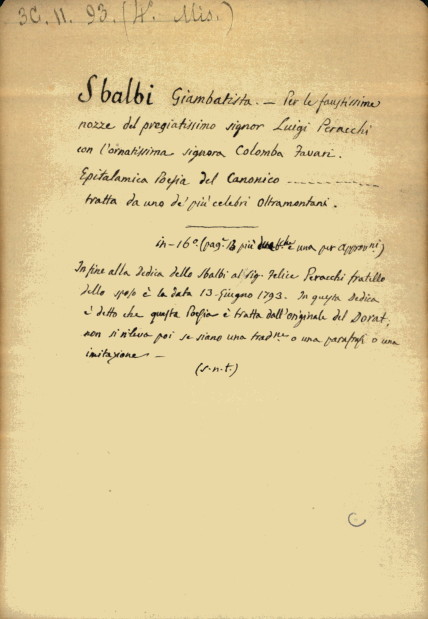 3C. 11. 93. (4°. Mis.)
Sbalbi Giambatista. — Per le faustissime
nozze del pregiatissimo signor Luigi Peracchi
con l'ornatissima signora Colomba Favari.
Epitalamica Poesia del Canonico ----------
tratta da uno de' più celebri oltramontani.
in-16°. (pag.
e una per approv.ni.)
In fine alla dedica dello Sbalbi al Sig. Felice Peracchi fratello
dello sposo è la data 13. Giugno 1793. In questa dedica
è detto che questa Poesia è tratta dall'originale del Dorat,
non si rileva poi se siano una trad.ne o una parafrasi o una
imitazione —
(s.n.t.)
C